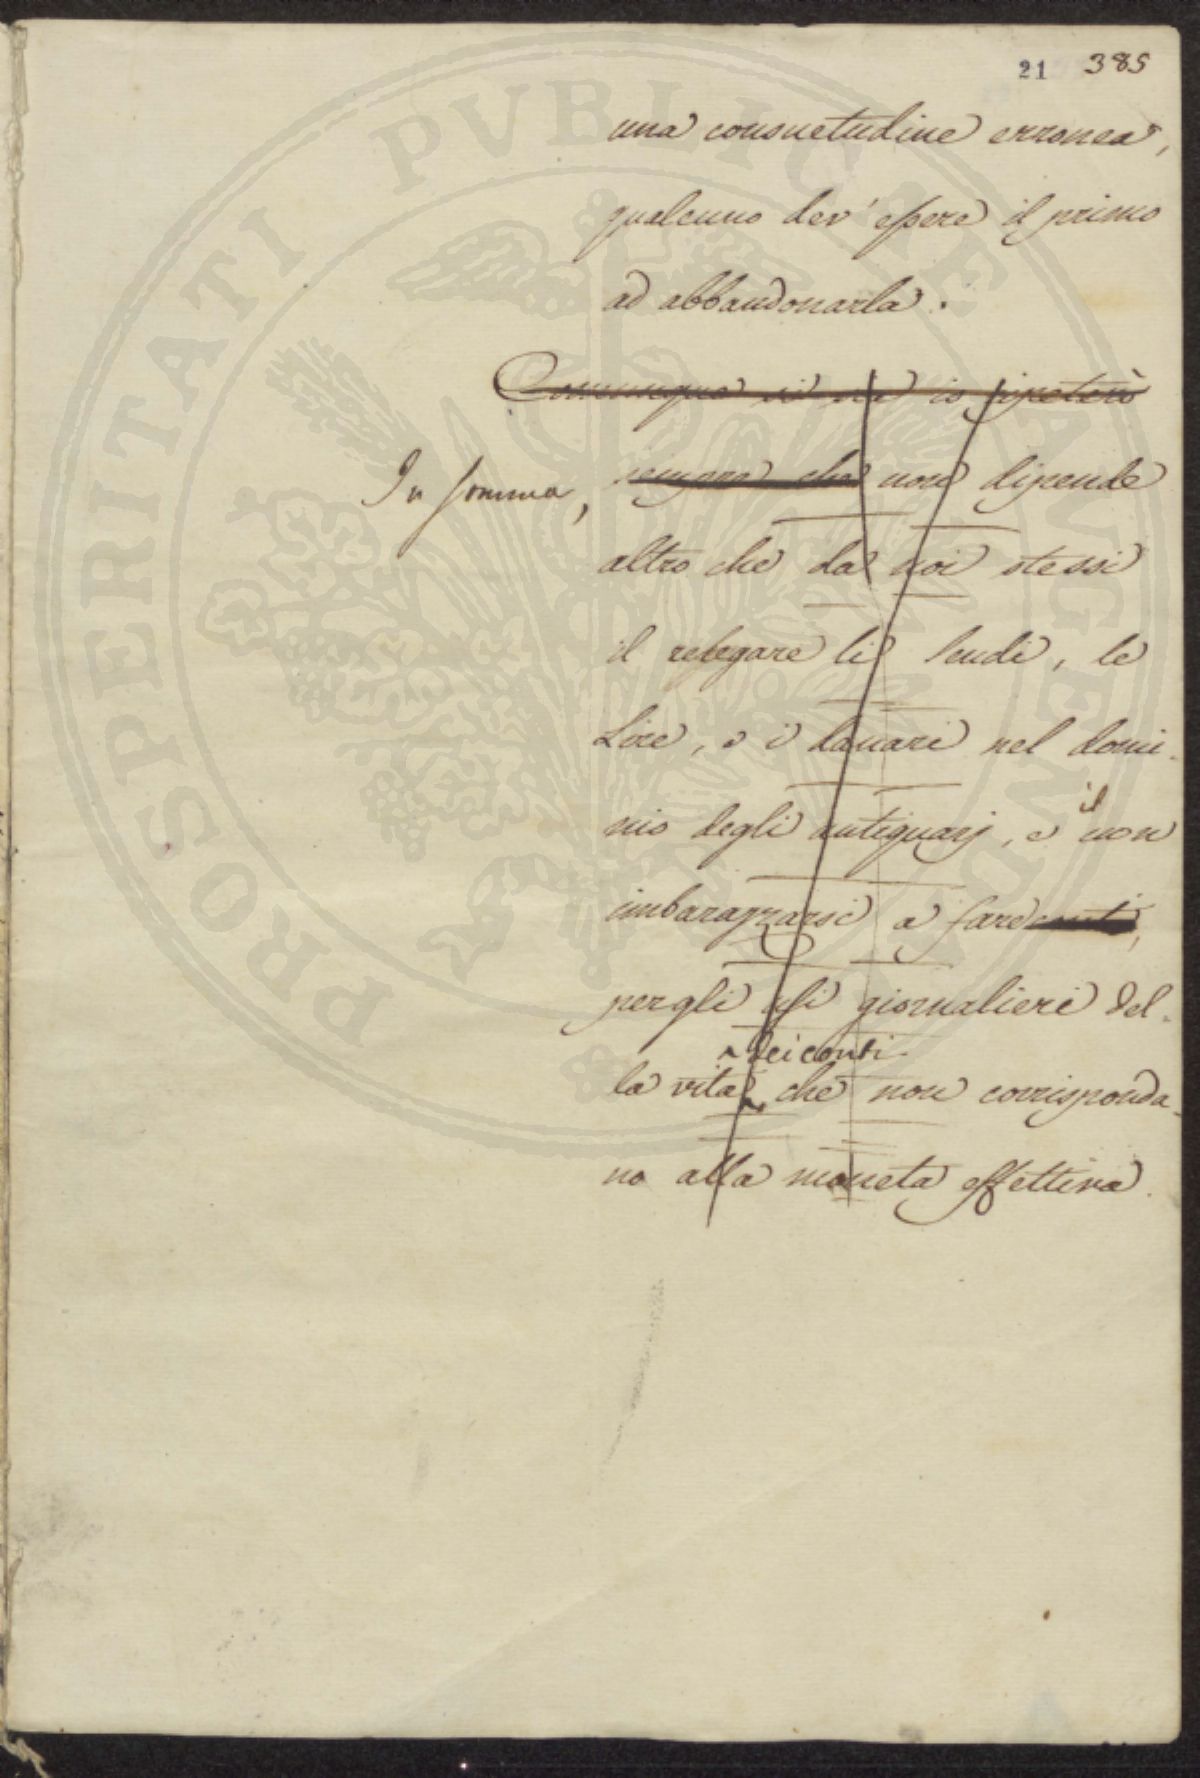 21 385
una consuetudine erronea,
qualcuno dev' essere il primo
ad abbandonarla.
Comunque sia io ripeterò
In somma, sempre che non dipende
altro che da noi stessi
il relegare li Scudi, le
Lire, e i danari nel domi-
nio degli antiquarj, e il non
imbarazzarsi a fare conti,
per gli usi giornalieri del-
dei conti
la vita che non corrisponda-
no alla moneta effettiva.
PROSPERITATI PVBLICAE AVGENDAE